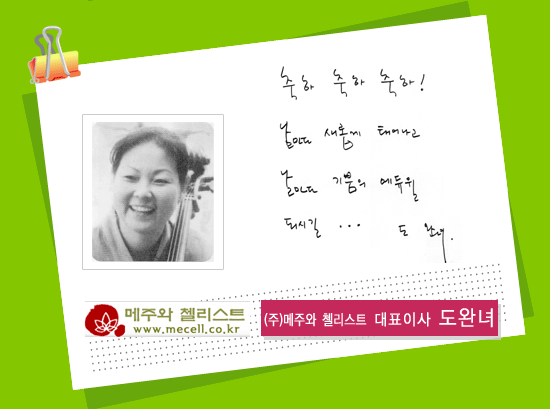 축하 축하 축하!
날마다 새롭게 태어나고
날마다 기쁨의 에듀윌
되시길 ... 도완녀.
메주와 첼리스트
www.mecell.co.kr
(주)메주와 첼리스트 대표이사 도완녀